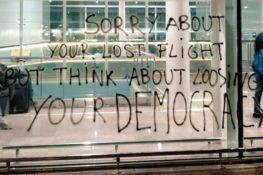 SORRY ABOUT
YOUR LOST FLIGHT
BUT THINK ABOUT LOOSING
YOUR DEMOCRA